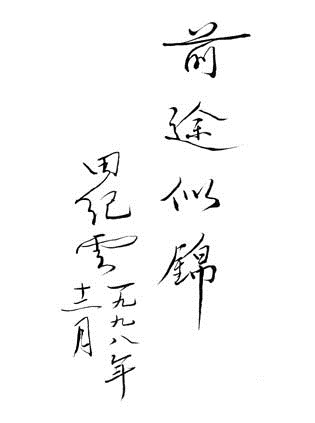 前途似錦
田紀雲
一九九八年
十二月